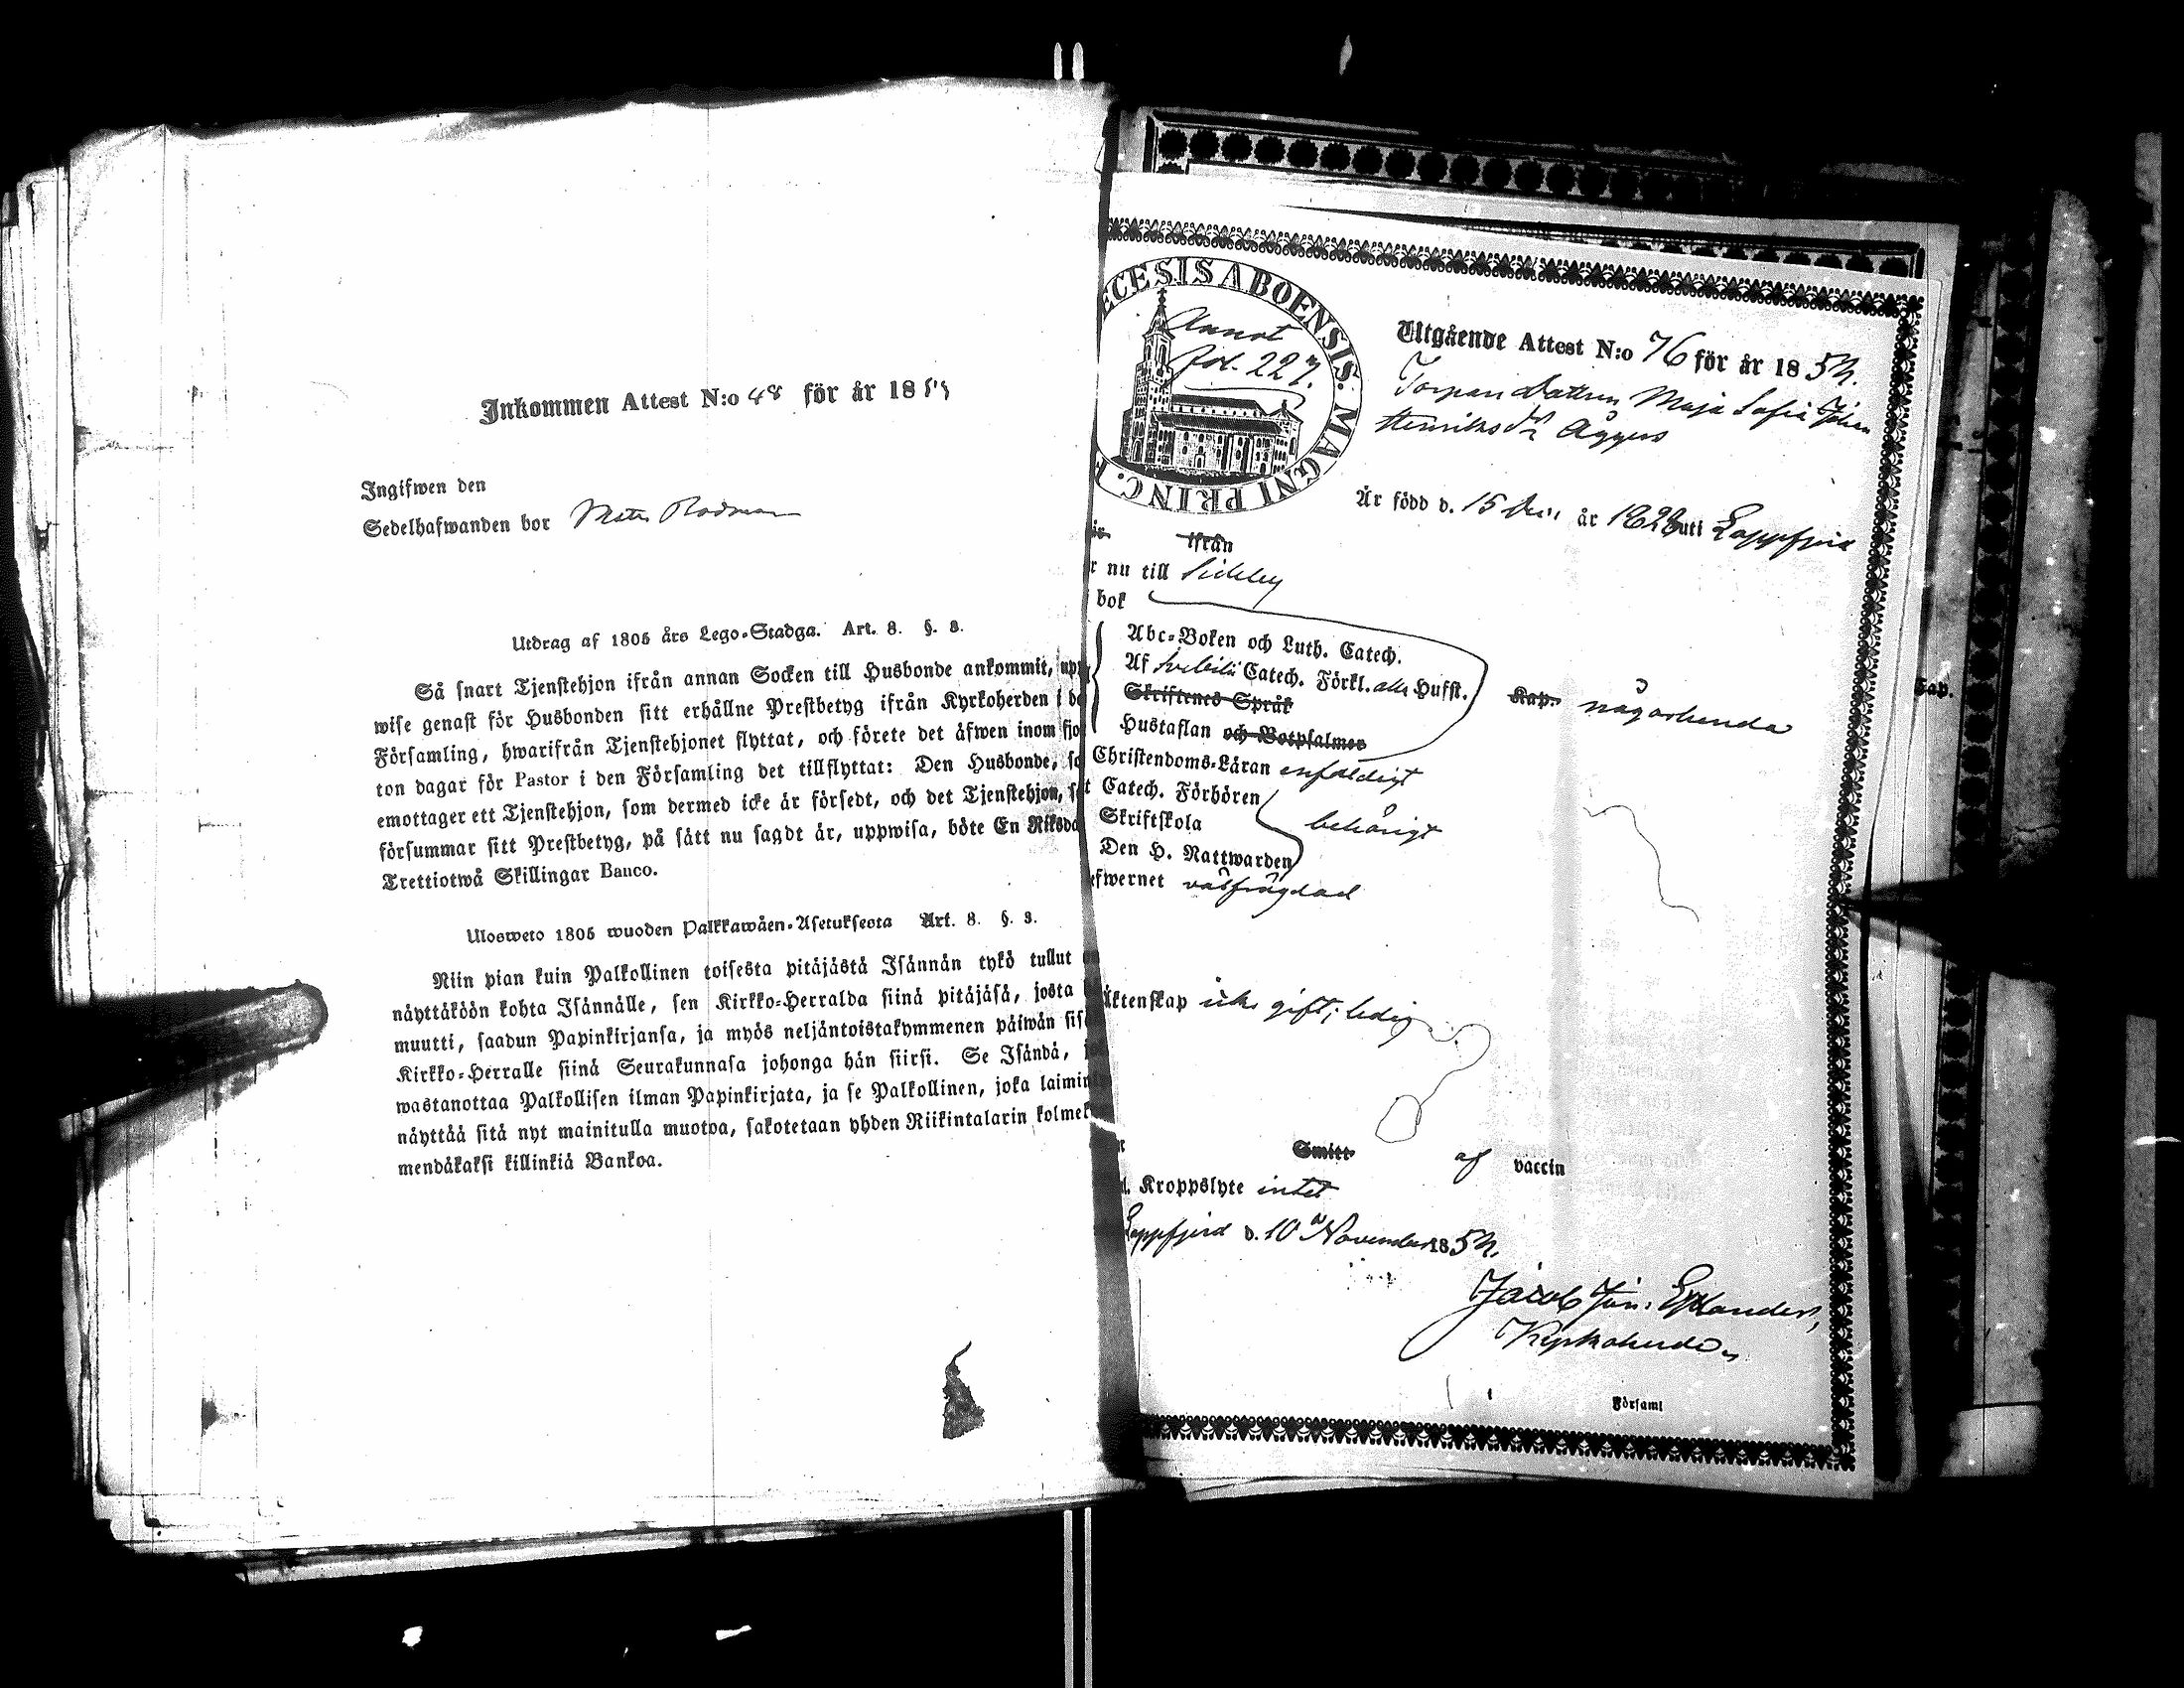 Inkommen Attest N:o 48 för år 18
Ingifwen den
Sedelhafwanden bor Mats Rodman
Utdrag af 1805 års Lego-Stadga. Art. 8. §. 3.
Så snart Tjenstehjon ifrån annan Socken till Husbonde ankommit, upp
wise genast för Husbonden sitt erhållne Prestbetyg ifrån Kyrkoherden i de
Församling, hwarifrån Tjenstehjonet flyttat, och förete det äfwen inom fjor
ton dagar för Pastor i den Församling det tillflyttat: Den Husbonde, so
emottager ett Tjenstehjon, som dermed icke är försedt, och det Tjenstehjon, s
försummar sitt Prestbetyg, på sätt nu sagdt är, uppwisa, böte En Riksda
Trettiotwå Skillingar Banco.
Ulosweto 1805 wuoden Palkkawäen-Asetuksesta Art. 8. §. 3.
Niin pian kuin Palkollinen toisesta pitäjästä Isännän tykö tullut
näyttäköön kohta Isännälle, sen Kirkko-Herralda siinä pitäjäsä, josta
muutti, saadun Papinkirjansa, ja myös neljäntoistakymmenen päiwän sis
Kirkko-Herralle siinä Seurakunnasa johonga hän siirsi. Se Isändä,
wastanottaa Palkollisen ilman Papinkirjata, ja se Palkollinen, joka laimin
näyttää sitä nyt mainitulla muotoa, sakotetaan yhden Riikintalarin kolmek
mendäkaksi killinkiä Bankoa.
ECESIS ABOENSIS. MAGNI PRINC. F
Annot
fol. 227.
Utgående Attest N:o 76 för år 1854.
Torpare dottren Maja Sofia Johan
Henriksdr Åggus
Är född d. 15 år 182 uti Lappfjerd
ifrån
r nu till Sideby
bok
Abc-Boken och Luth. Catech.
Af Svebilii Catech. Förkl. alla Hufst.
Skriftenes Språk
Kap. någorlunda
Hustaflan och Botpsalmer
Christendoms-Läran enfaldigt
t Catech. Förhören
Skriftskola
behörigt
Den H. Nattwarden
efwernet välfrägdad
Äktenskap icke gift; ledig
Smitt af vaccin
d. Kroppslyte intet
Lappfjerd d. 10 November 1854.
Jacob Joh: Estlander,
Kyrkoherde
Församl
Kap.